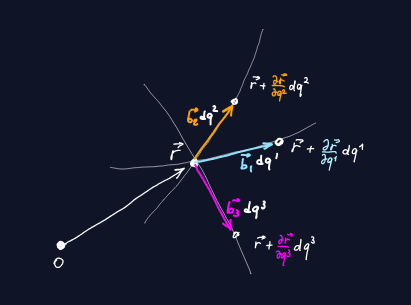 r⃗ + ∂r⃗/∂q² dq²
b⃗₂ dq²
r⃗
r⃗ + ∂r⃗/∂q¹ dq¹
b⃗₁ dq¹
b⃗₃ dq³
r⃗ + ∂r⃗/∂q³ dq³
O